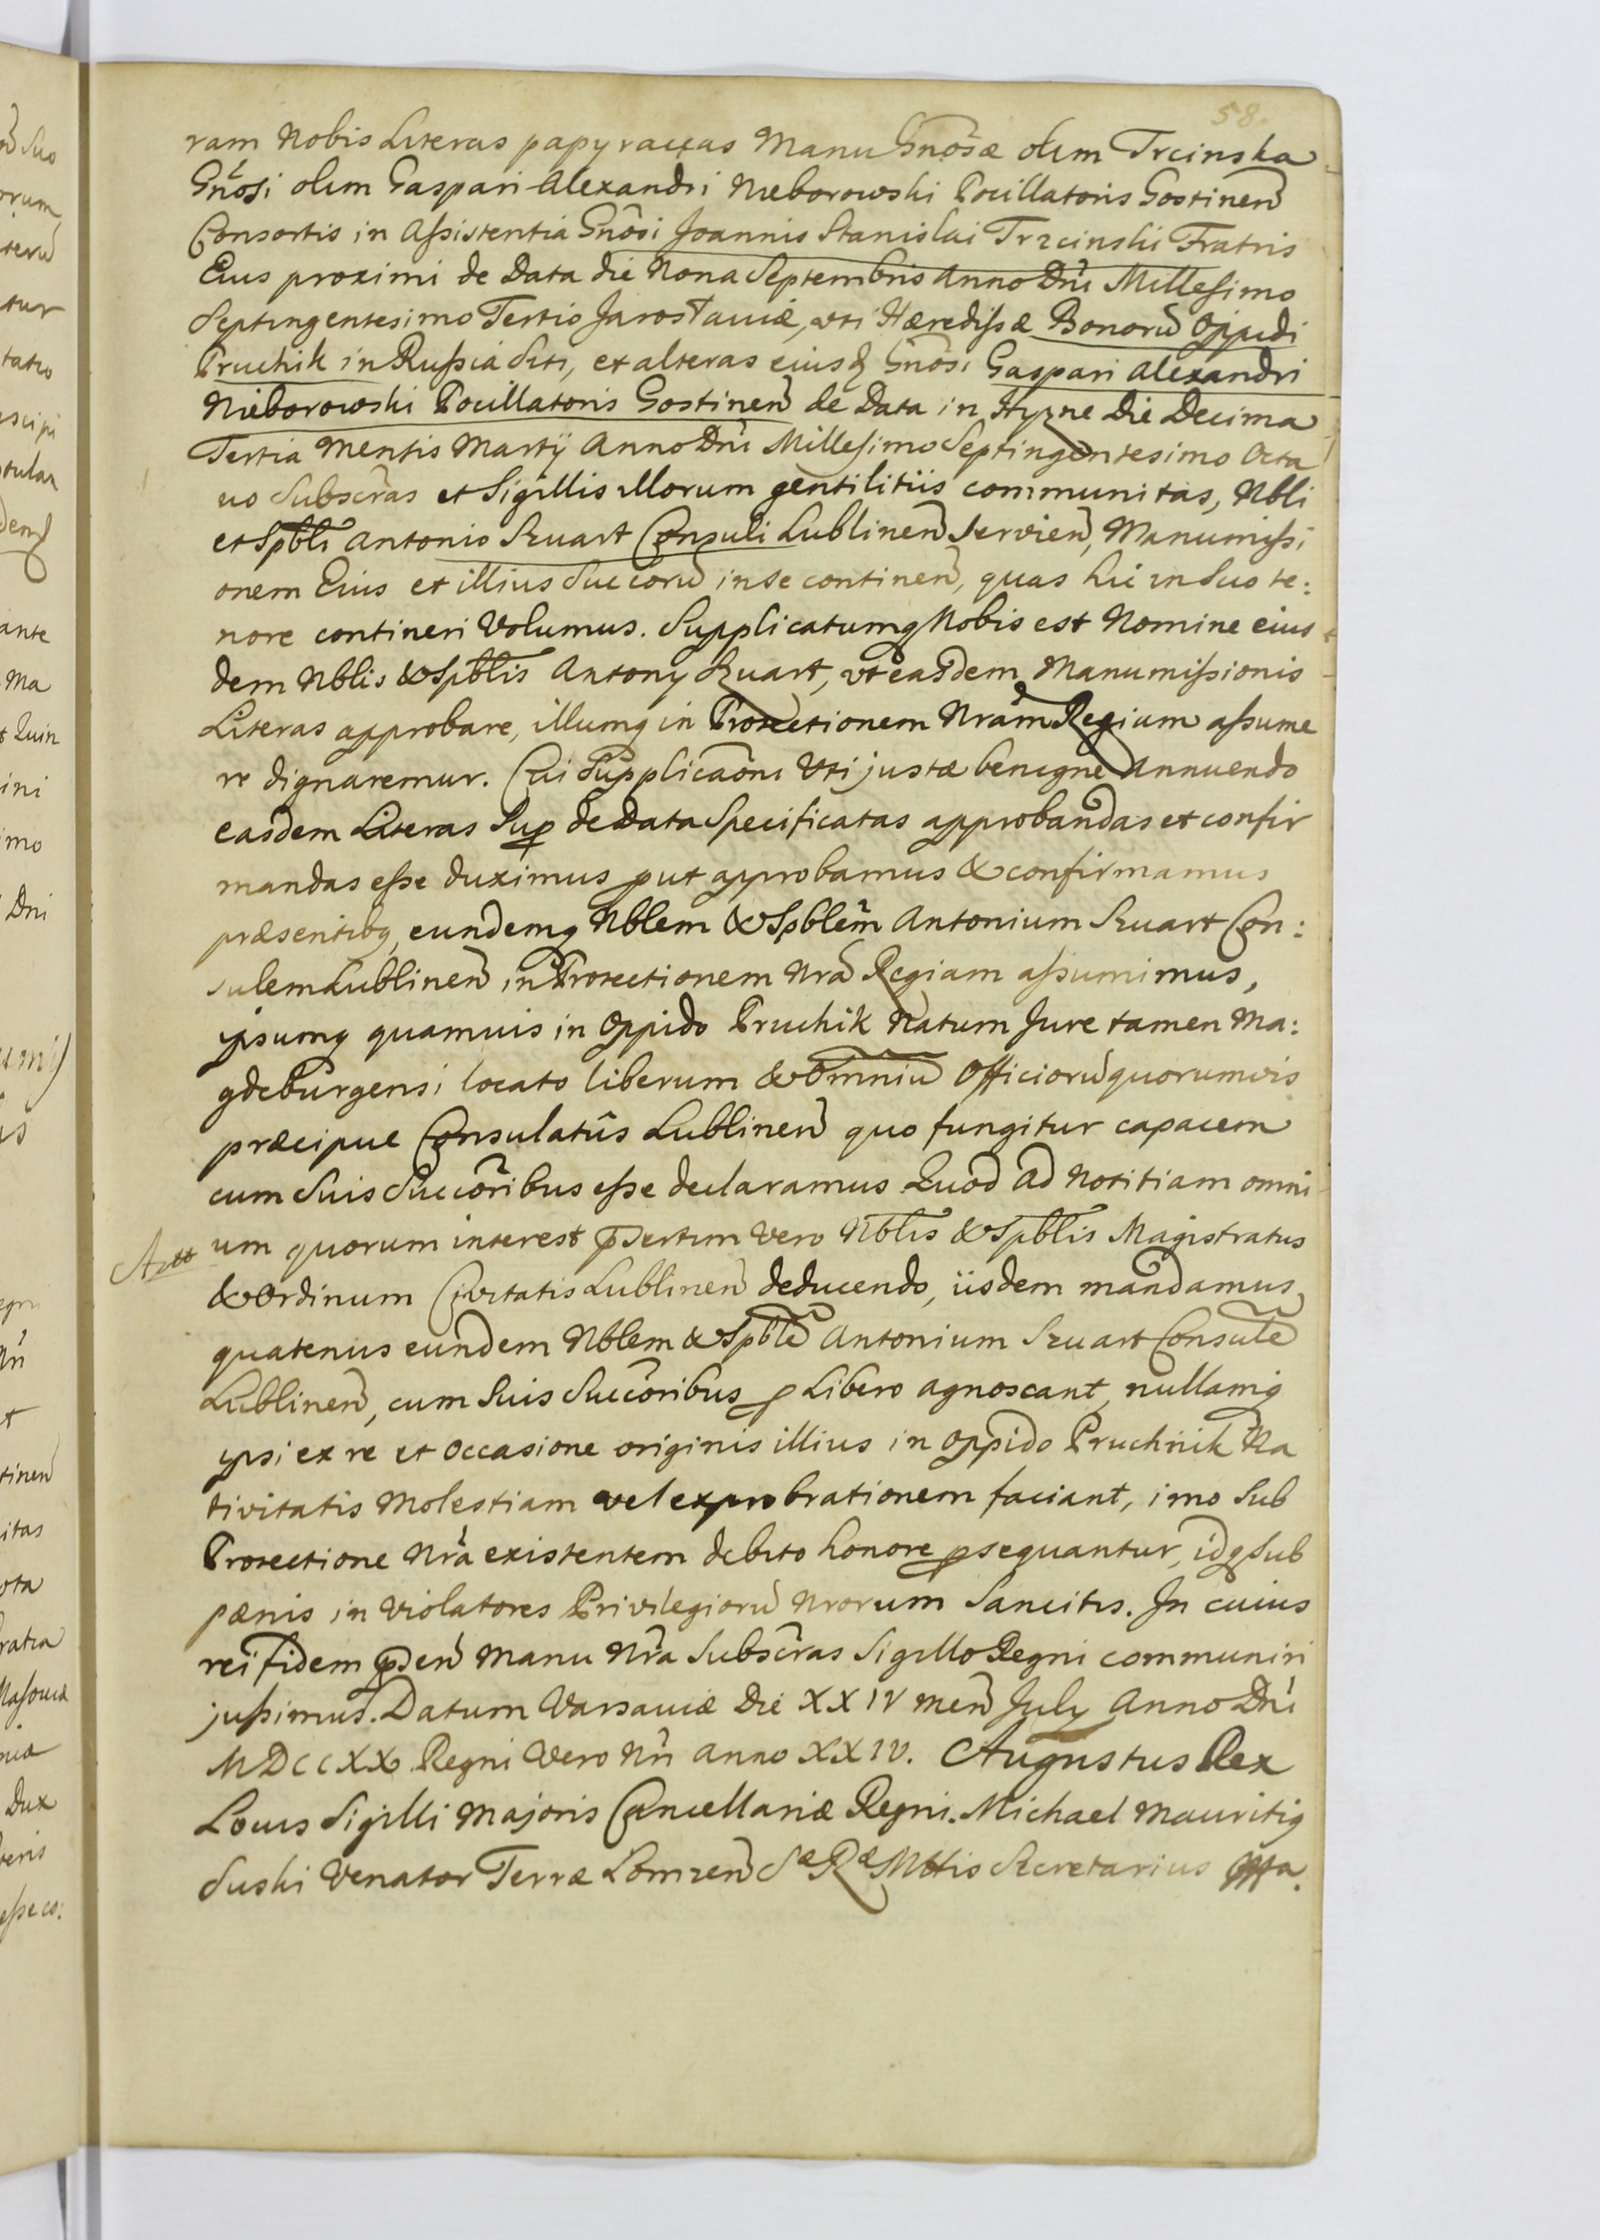 58.
ram Nobis Literas papyraceas Manu Gnõsæ olim Trcinska
Gnõsi olim Gaspari Alexandri Nieborowski Pocillatoris Gostinen̄
Consortis in Aſsistentia Gnõsi Joannis Stanislai Trzcinski Fratris
Eius proximi de Data die Nona Septembris Anno Dñi Milleſimo
Septingentesimo Tertio Jaroslaviæ, uti Hærediſsæ Bonorū Oppidi
Pruchik in Ruſsia Siti, et alteras eiusq̃ Gnõsi Gaspari Alexandri
Nieborowski Pocillatoris Gostinen̄ de Data in Hyzne Die Decima
Tertia Mensis Martÿ Anno Dñi Milleſimo Septingentesimo Octa
uo Subscr̃as et Sigillis illorum gentilitiis communitas, Nbli
et Spbli Antonio Szuart Consuli Lublinen̄ Servien̄, Manumiſsi
onem Eius et illius Succorū in se continen̄, quas hic in Suo te:
nore contineri Volumus. Supplicatumq̃ Nobis est Nomine eius
dem Nblis & Spblis Antony Szuart, ut easdem Manumiſsionis
Literas approbare, illumq̃ in Protectionem Nrãm Regiam aſsume
re dignaremur. Cui Supplicaõni Uti justæ benigne Annuendo
easdem Literas Sup̱ de Data Specificatas approbandas et confir
mandas eſse duximus p̱ut approbamus & confirmamus
præsentibq̃, eundemq̃ Nblem & Spblẽm Antonium Szuart Con:
sulem Lublinen̄ in Protectionem Nrã Regiam aſsumimus,
ipsumq̃ quamuis in Oppido Pruchik Natum Jure tamen Ma:
gdeburgensi locato liberum & Omniū Officiorū quorumvis
præcipue Consulatûs Lublinen̄ quo fungitur capacem
cum Suis Succõribus eſse declaramus Quod ad Notitiam omni
um quorum interest p̱sertim Vero Nblis & Spblis Magistratus
& Ordinum Civitatis Lublinen̄ deducendo, iisdem mandamus,
quatenus eundem Nblem & Spblẽ Antonium Szuart Consulẽ
Lublinen̄, cum Suis Succõribus p̱ Libero agnoscant, nullamq̃
ipsi ex re et Occasione originis illius in Oppido Pruchnik Na
tivitatis Molestiam vel exprobrationem faciant, imo Sub
Protectione Nrã existentem debito honore p̱sequantur, idq̃ Sub
pænis in Violatores Privilegiorū Nrorum Sancitis. In cuius
rei fidem p̱sen̄ Manu Nrã Subscr̃as Sigillo Regni communiri
juſsimus. Datum Varsaviæ Die XXIV men̄ July Anno Dñi
MDCCXX Regni Vero Nri Anno XXIV. Augustus Rex
Locus Sigilli Majoris Cancellariæ Regni. Michael Mauritiq̃
Suski Venator Terræ Lomzen̄ Sæ Ræ Mttis Secretarius